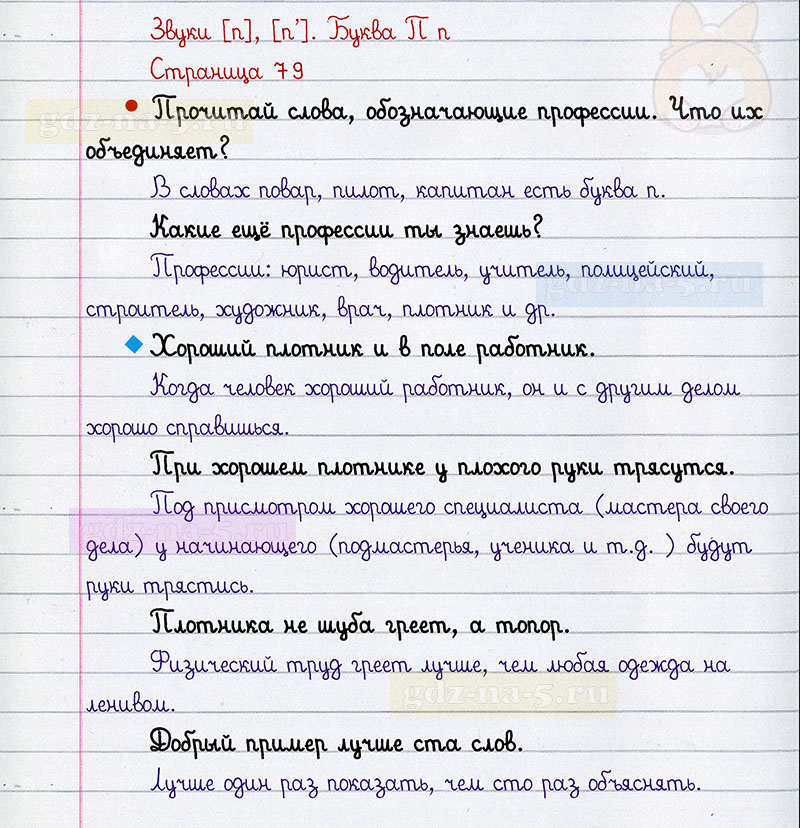 Звуки [п], [п']. Буква П п
Страница 79
Прочитай слова, обозначающие профессии. Что их
gdz-na-5.ru
объединяет?
В словах повар, пилот, капитан есть буква п.
Какие ещё профессии ты знаешь?
Профессии: юрист, водитель, учитель, полицейский,
gdz-na-5.ru
строитель, художник, врач, плотник и др.
Хороший плотник и в поле работник.
Когда человек хороший работник, он и с другим делом
хорошо справишься.
При хорошем плотнике у плохого руки трясутся.
Под присмотром хорошего специалиста (мастера своего
gdz-na-5.ru
дела) у начинающего (подмастерья, ученика и т.д. ) будут
руки трястись.
Плотника не шуба греет, а топор.
Физический труд греет лучше, чем любая одежда на
gdz-na-5.ru
ленивом.
Добрый пример лучше ста слов.
Лучше один раз показать, чем сто раз объяснять.